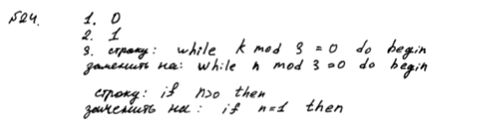 №24.
1. 0
2. 1
3. строку: while k mod 3 = 0 do begin
заменить на: while n mod 3 = 0 do begin
строку: if n>0 then
заменить на: if n=1 then